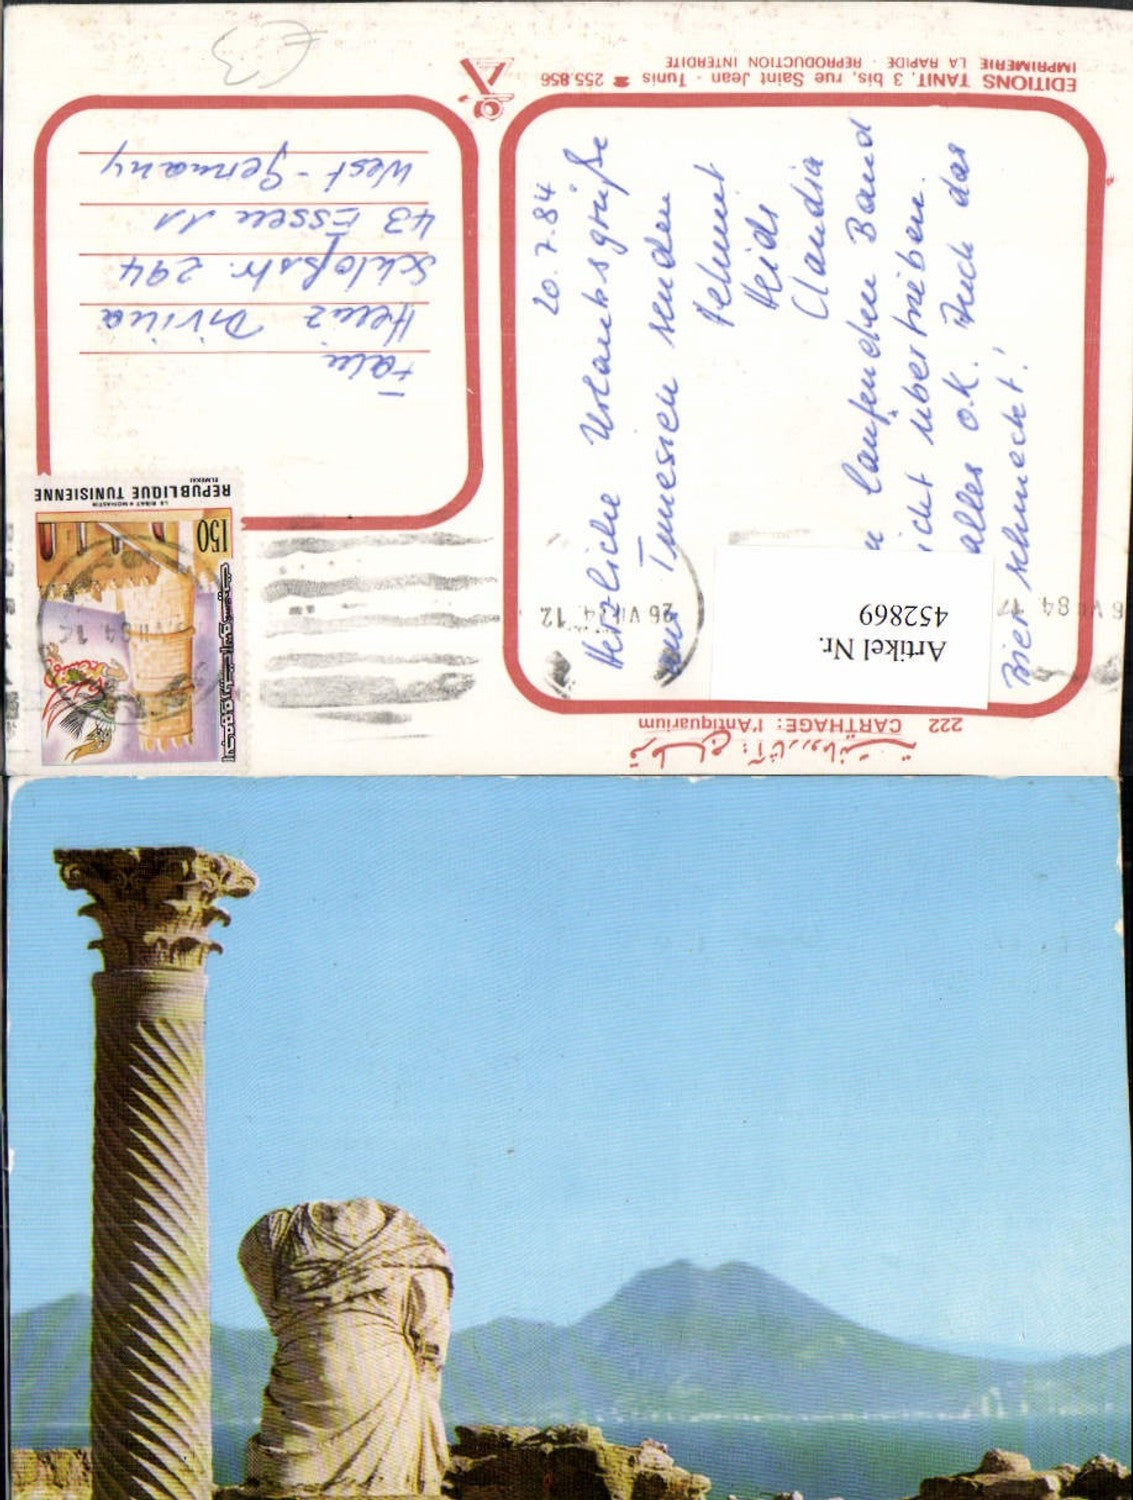 222 CARTHAGE: l'Antiquarium
20.7.84
Herzliche Urlaubsgrüße
aus Tunesien senden
Helmut
Heidi
Claudia
laufenden Band
icht übertrieben.
alles o.k. Auch das
Bier schmeckt!
Artikel Nr.
452869
26 VII 84 12
EDITIONS TANIT. 3 bis, rue Saint Jean - Tunis ☎ 255.856
IMPRIMERIE LA RAPIDE - REPRODUCTION INTERDITE
150
LE RIBAT • MONASTIR
REPUBLIQUE TUNISIENNE
ELMEKKI
Fam.
Heinz Divina
Schloßstr. 294
43 Essen 11
West-Germany
€3